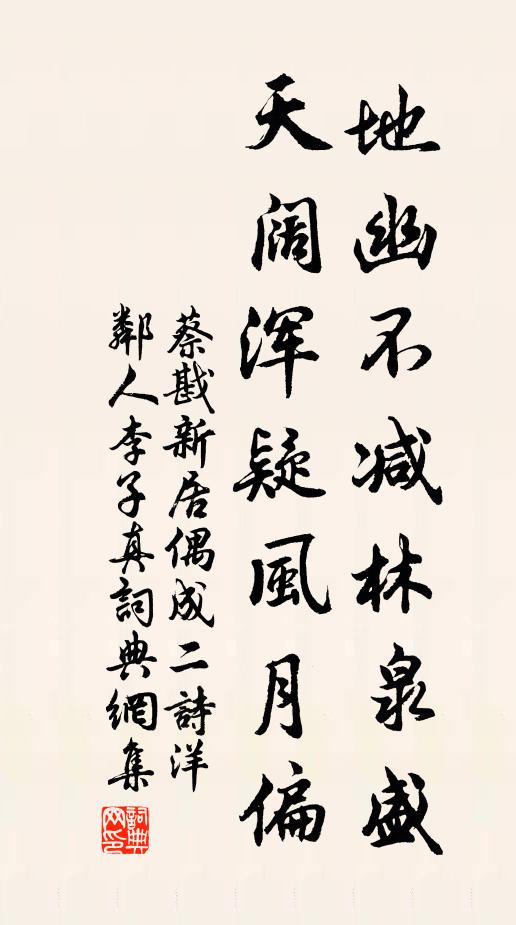 地幽不减林泉盛
天阔浑疑風月偏
蔡戡新居偶成二詩洋
鄰人李子真詞典網集
詞典网印